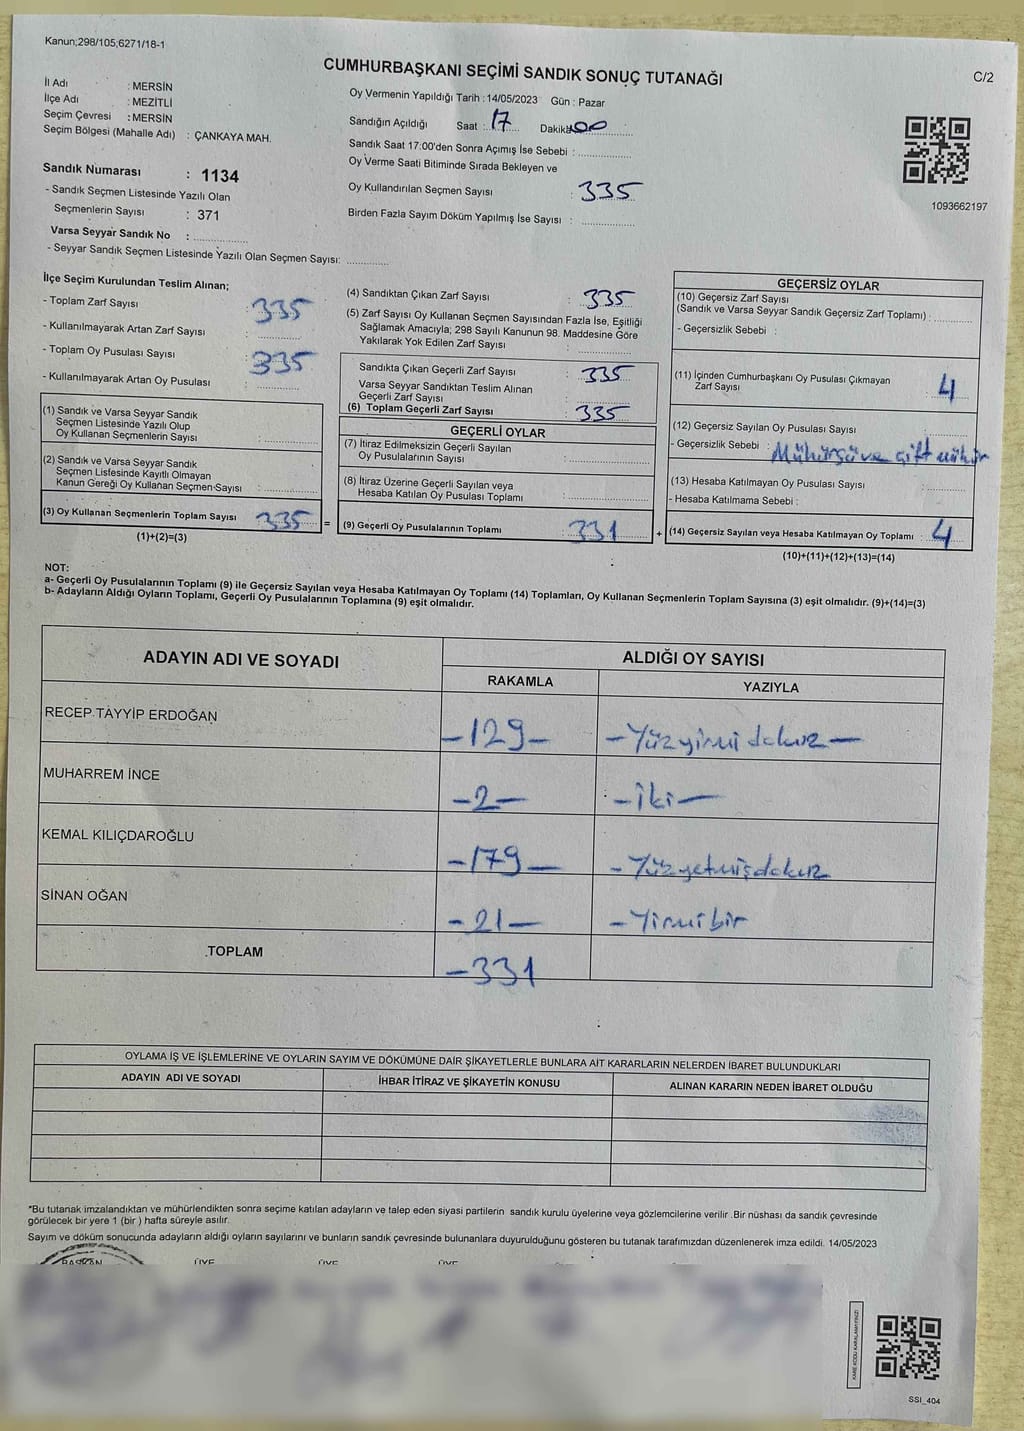 Kanun;298/105;6271/18-1
CUMHURBAŞKANI SEÇİMİ SANDIK SONUÇ TUTANAĞI
C/2
İl Adı : MERSİN
İlçe Adı : MEZİTLİ
Seçim Çevresi : MERSİN
Seçim Bölgesi (Mahalle Adı) : ÇANKAYA MAH.
Sandık Numarası : 1134
- Sandık Seçmen Listesinde Yazılı Olan
Seçmenlerin Sayısı : 371
Varsa Seyyar Sandık No : ................
- Seyyar Sandık Seçmen Listesinde Yazılı Olan Seçmen Sayısı: ............
Oy Vermenin Yapıldığı Tarih : 14/05/2023 Gün : Pazar
Sandığın Açıldığı Saat : 17 Dakika: 00
Sandık Saat 17:00'den Sonra Açımış İse Sebebi : ................
Oy Verme Saati Bitiminde Sırada Bekleyen ve
Oy Kullandırılan Seçmen Sayısı : 335
Birden Fazla Sayım Döküm Yapılmış İse Sayısı : ................
1093662197
İlçe Seçim Kurulundan Teslim Alınan;
- Toplam Zarf Sayısı : 335
- Kullanılmayarak Artan Zarf Sayısı : ............
- Toplam Oy Pusulası Sayısı : 335
- Kullanılmayarak Artan Oy Pusulası : ............
(1) Sandık ve Varsa Seyyar Sandık
Seçmen Listesinde Yazılı Olup
Oy Kullanan Seçmenlerin Sayısı : ................
(2) Sandık ve Varsa Seyyar Sandık
Seçmen Listesinde Kayıtlı Olmayan
Kanun Gereği Oy Kullanan Seçmen Sayısı : ................
(3) Oy Kullanan Seçmenlerin Toplam Sayısı : 335 =
(1)+(2)=(3)
(4) Sandıktan Çıkan Zarf Sayısı : 335
(5) Zarf Sayısı Oy Kullanan Seçmen Sayısından Fazla İse, Eşitliği
Sağlamak Amacıyla; 298 Sayılı Kanunun 98. Maddesine Göre
Yakılarak Yok Edilen Zarf Sayısı : ................
Sandıkta Çıkan Geçerli Zarf Sayısı : 335
Varsa Seyyar Sandıktan Teslim Alınan
Geçerli Zarf Sayısı : ................
(6) Toplam Geçerli Zarf Sayısı : 335
GEÇERLİ OYLAR
(7) İtiraz Edilmeksizin Geçerli Sayılan
Oy Pusulalarının Sayısı : ................
(8) İtiraz Üzerine Geçerli Sayılan veya
Hesaba Katılan Oy Pusulası Toplamı : ................
(9) Geçerli Oy Pusulalarının Toplamı : 331 +
GEÇERSİZ OYLAR
(10) Geçersiz Zarf Sayısı
(Sandık ve Varsa Seyyar Sandık Geçersiz Zarf Toplamı) : ............
- Geçersizlik Sebebi :
(11) İçinden Cumhurbaşkanı Oy Pusulası Çıkmayan
Zarf Sayısı : 4
(12) Geçersiz Sayılan Oy Pusulası Sayısı : ............
- Geçersizlik Sebebi : Mühürsü ve çift mühür
(13) Hesaba Katılmayan Oy Pusulası Sayısı : ............
- Hesaba Katılmama Sebebi :
(14) Geçersiz Sayılan veya Hesaba Katılmayan Oy Toplamı : 4
(10)+(11)+(12)+(13)=(14)
NOT:
a- Geçerli Oy Pusulalarının Toplamı (9) ile Geçersiz Sayılan veya Hesaba Katılmayan Oy Toplamı (14) Toplamları, Oy Kullanan Seçmenlerin Toplam Sayısına (3) eşit olmalıdır. (9)+(14)=(3)
b- Adayların Aldığı Oyların Toplamı, Geçerli Oy Pusulalarının Toplamına (9) eşit olmalıdır.
ADAYIN ADI VE SOYADI ALDIĞI OY SAYISI
RAKAMLA YAZIYLA
RECEP TAYYİP ERDOĞAN -129- -Yüzyirmi dokuz-
MUHARREM İNCE -2- -iki-
KEMAL KILIÇDAROĞLU -179- -Yüzyetmişdokuz
SİNAN OĞAN -21- -Yirmibir
TOPLAM -331
OYLAMA İŞ VE İŞLEMLERİNE VE OYLARIN SAYIM VE DÖKÜMÜNE DAİR ŞİKAYETLERLE BUNLARA AİT KARARLARIN NELERDEN İBARET BULUNDUKLARI
ADAYIN ADI VE SOYADI İHBAR İTİRAZ VE ŞİKAYETİN KONUSU ALINAN KARARIN NEDEN İBARET OLDUĞU
*Bu tutanak imzalandıktan ve mühürlendikten sonra seçime katılan adayların ve talep eden siyasi partilerin sandık kurulu üyelerine veya gözlemcilerine verilir .Bir nüshası da sandık çevresinde
görülecek bir yere 1 (bir ) hafta süreyle asılır.
Sayım ve döküm sonucunda adayların aldığı oyların sayılarını ve bunların sandık çevresinde bulunanlara duyurulduğunu gösteren bu tutanak tarafımızdan düzenlenerek imza edildi. 14/05/2023
BAŞKAN ÜYE ÜYE ÜYE
KARE KODU KARALAMAYINIZ!
SSI_404